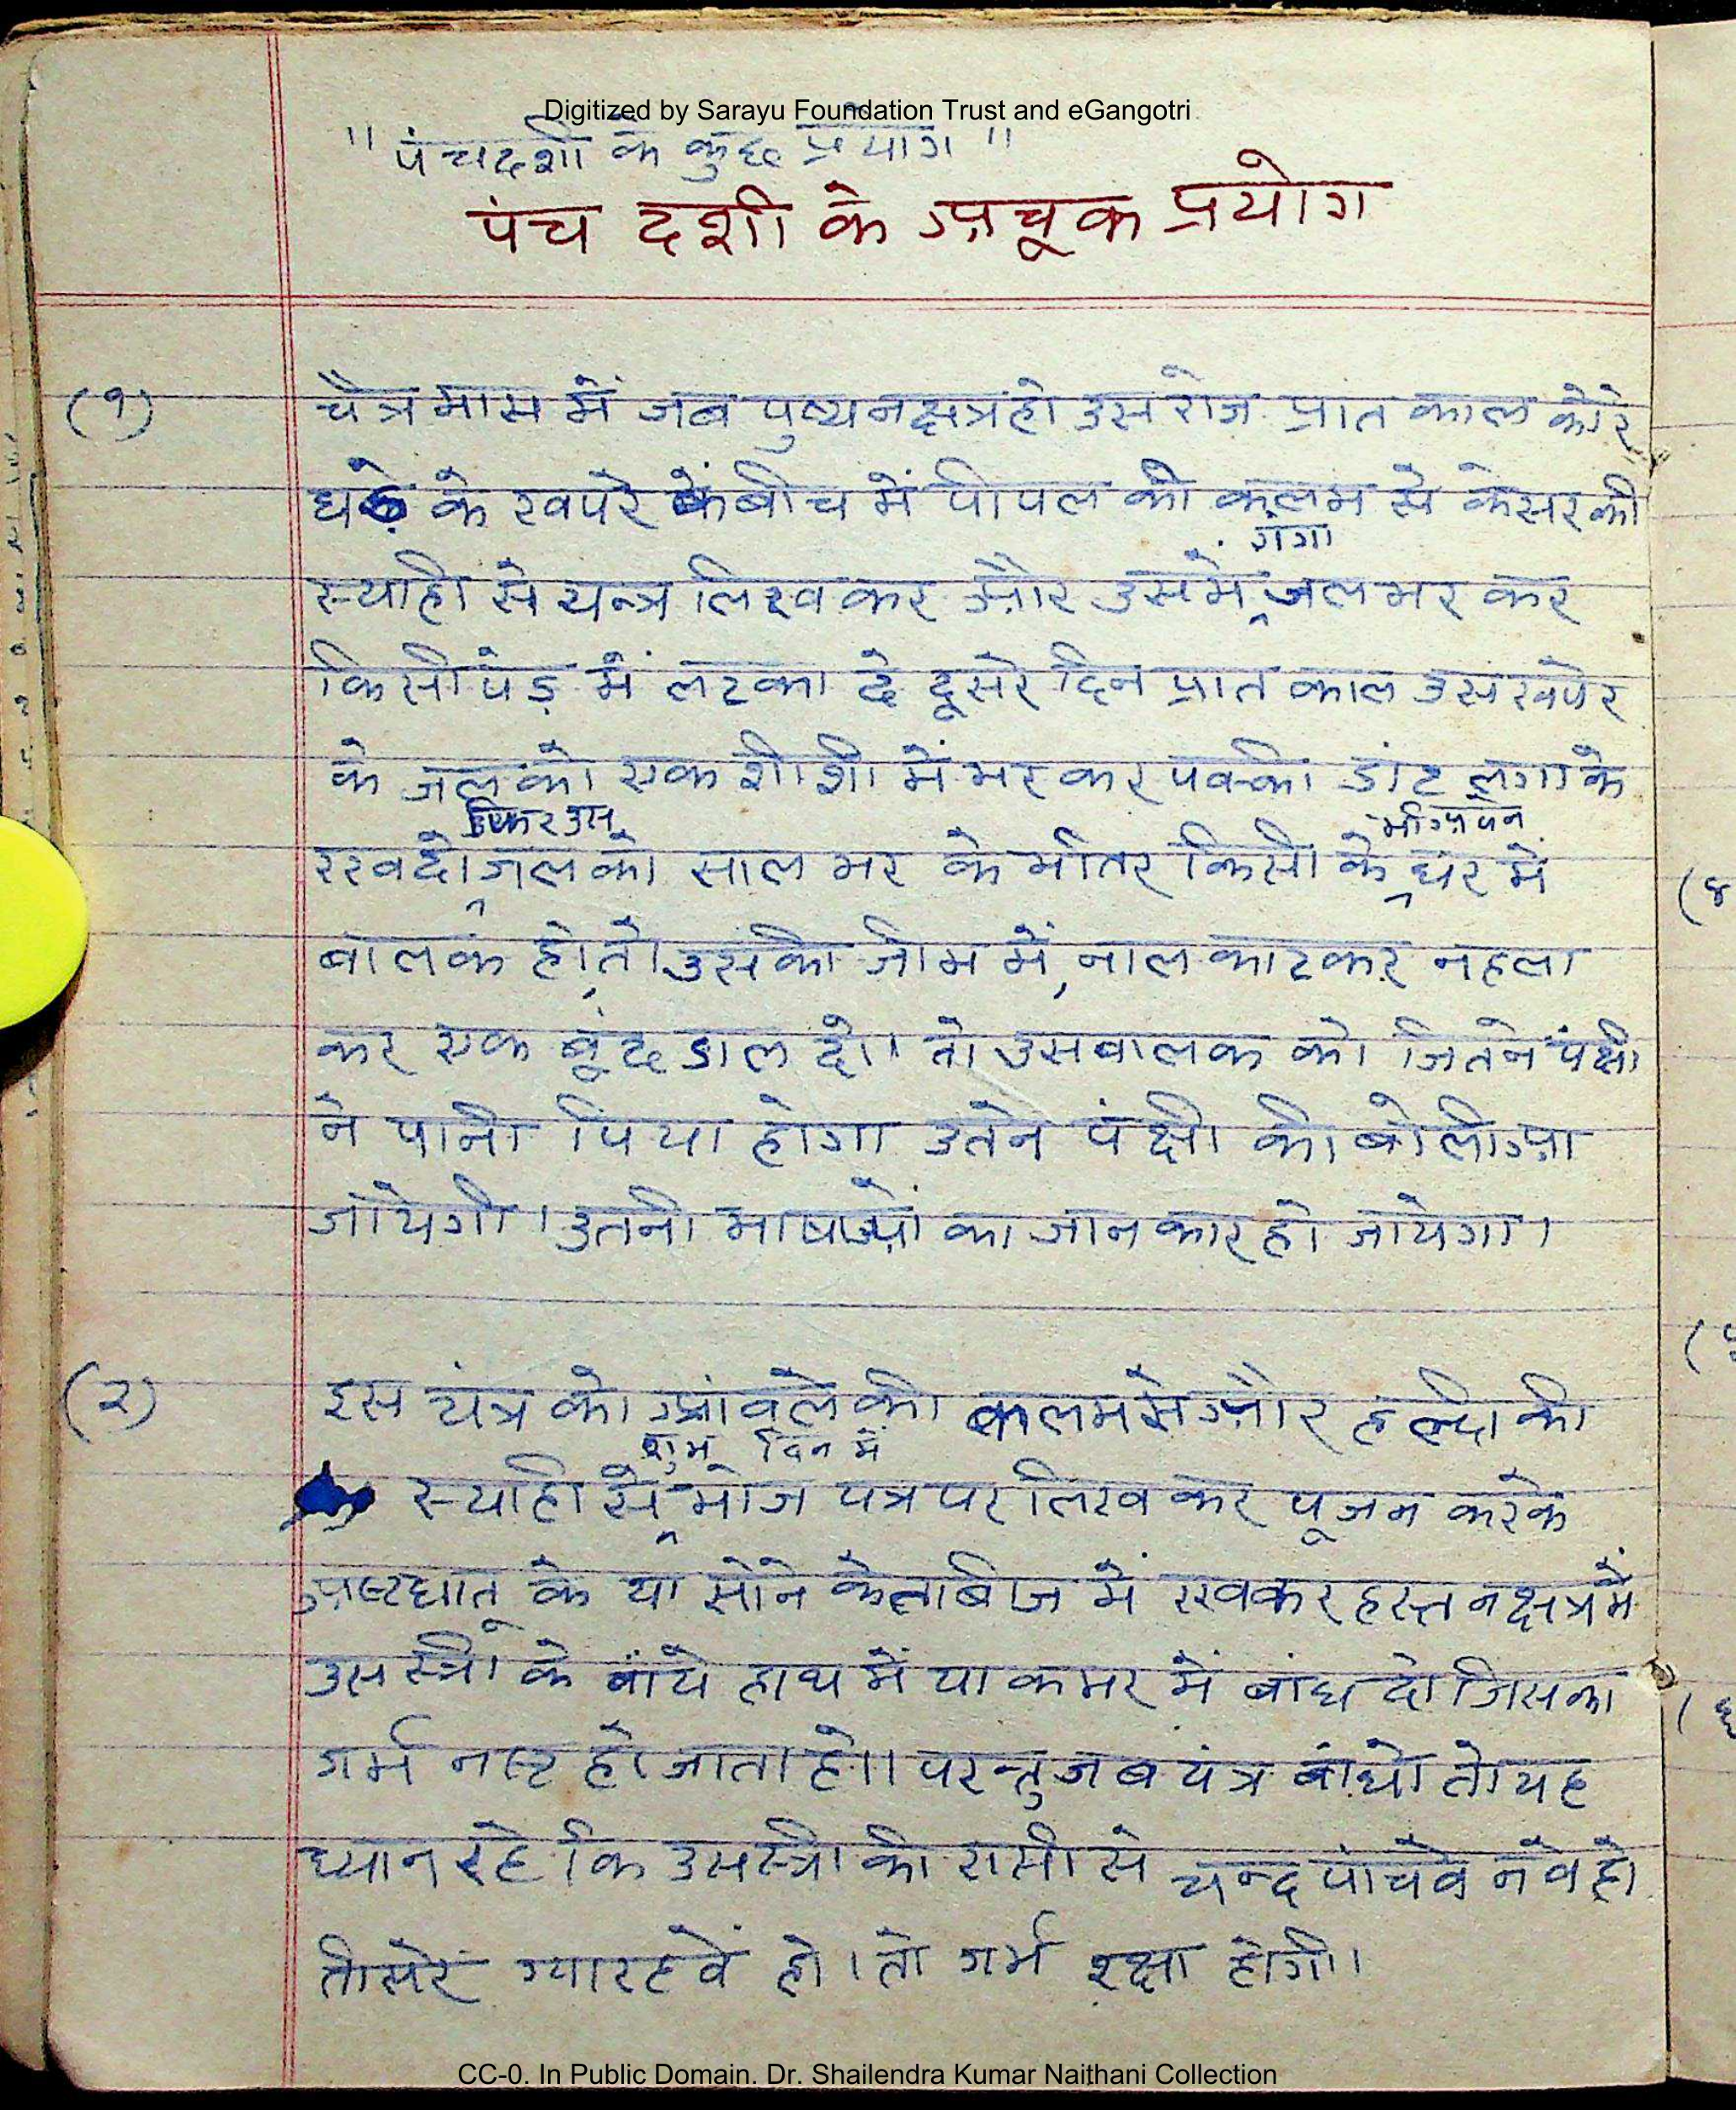 Digitized by Sarayu Foundation Trust and eGangotri
" पंचदशी के कुछ प्रयोग "
पंच दशी के अचूक प्रयोग
(१) चैत्र मास में जब पुष्य नक्षत्र हो उस रोज प्रात काल कोरे
घड़े के खपरे के बीच में पीपल की कलम से केसर की
स्याही से यन्त्र लिख कर और उसमें गंगा जल भर कर
किसी पेड़ में लटका दे दूसरे दिन प्रात काल उस खपरे
के जल को एक शीशी में भर कर पक्की डांट लगा के
रख दो फिर उस जल को साल भर के भीतर किसी के भी अपने घर में
बालक हो, तो उसकी जीभ में, नाल काटकर नहला
कर एक बूंद डाल दो। तो उस बालक को जितने पंक्षी
ने पानी पिया होगा उतने पंक्षी की बोली आ
जायेगी। उतनी भाषाओं का जानकार हो जायेगा।
(२) इस यंत्र को आंवले की कलम से और हल्दी की
स्याही से शुभ दिन में भोज पत्र पर लिख कर पूजन करके
अष्टधातू के या सोने के ताबिज में रखकर हस्त नक्षत्र में
उस स्त्री के बांये हाथ में या कमर में बांध दो जिसका
गर्भ नष्ट हो जाता हो। परन्तु जब यंत्र बांधो तो यह
ध्यान रहे कि उस स्त्री की रासी से चन्द्र पांचवे नवे हो
तीसरे ग्यारहवें हो। तो गर्भ रक्षा होगी।
(४
(५
CC-0. In Public Domain. Dr. Shailendra Kumar Naithani Collection